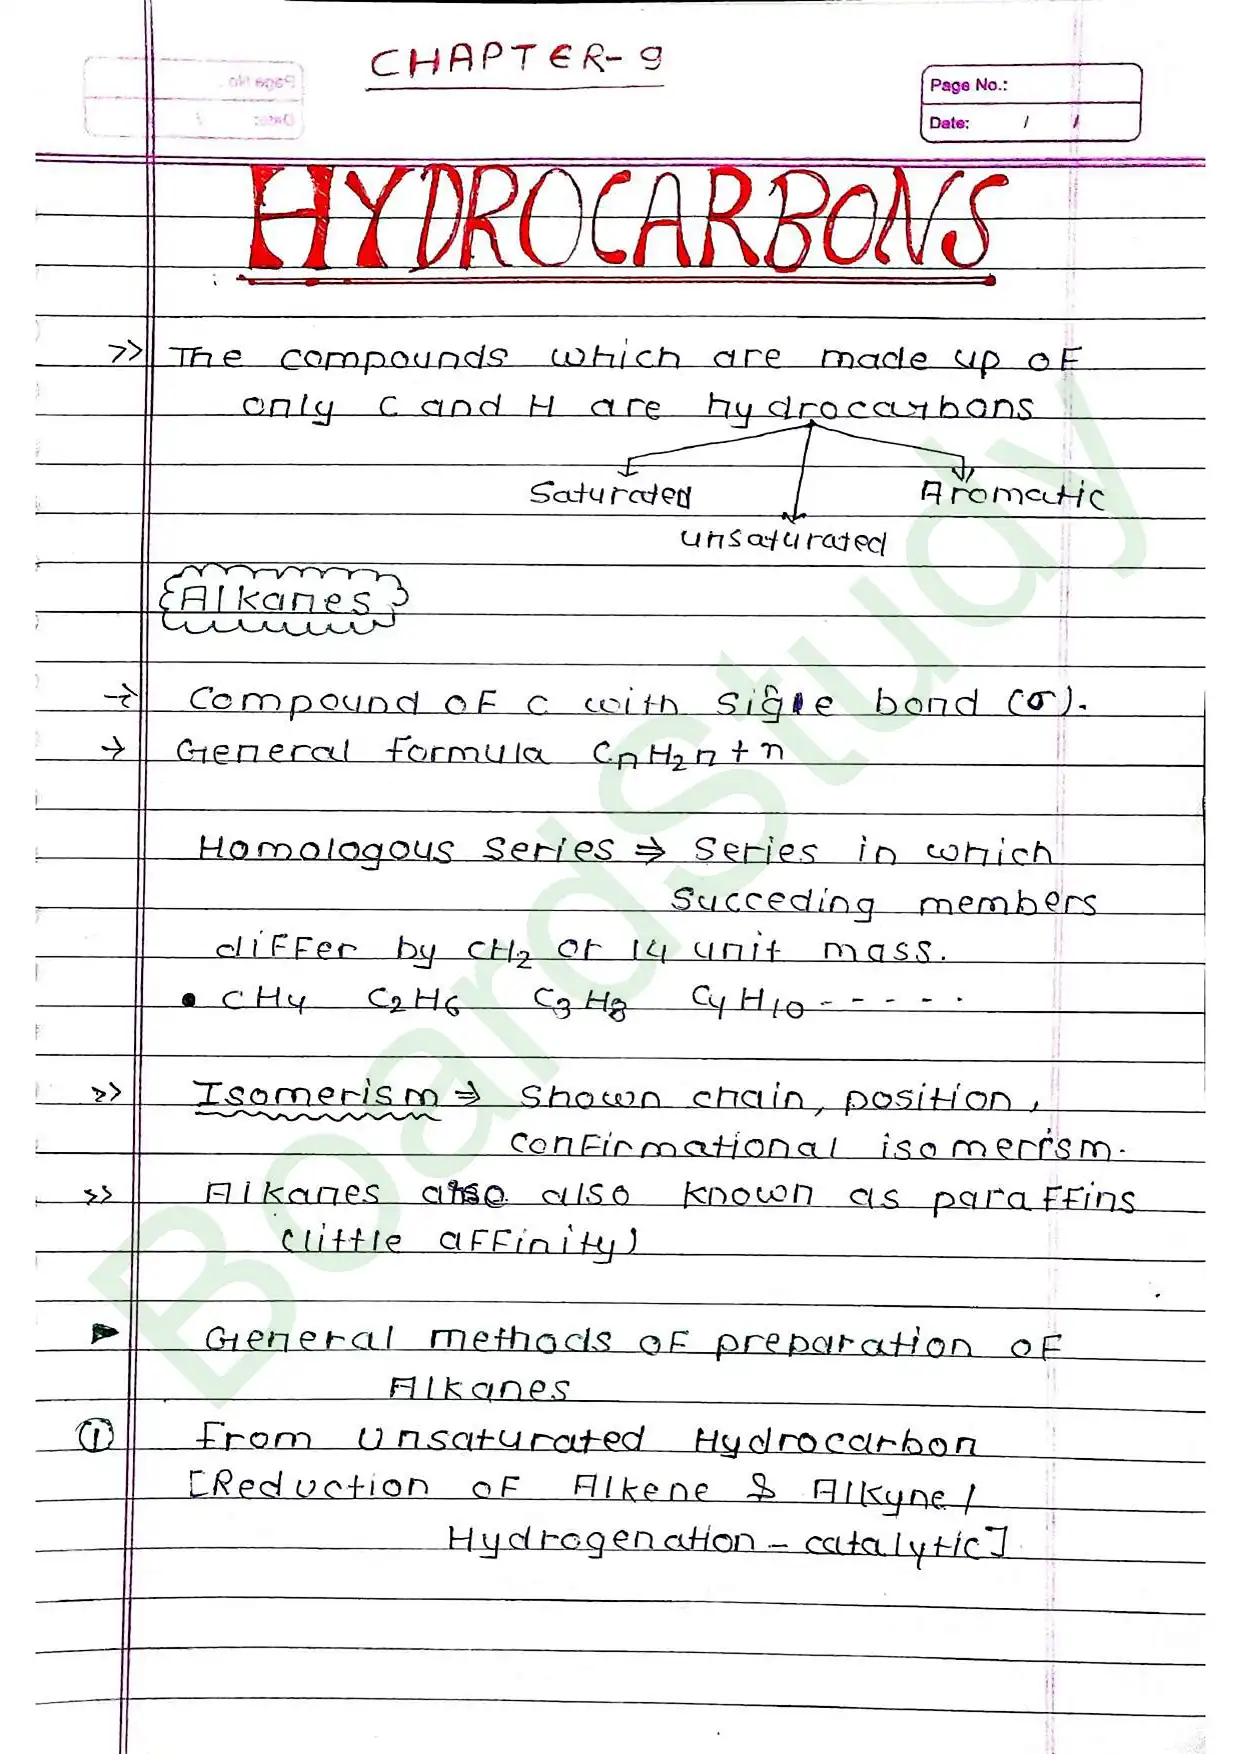 CHAPTER-9
Page No.:
Date: / /
HYDROCARBONS
>> The compounds which are made up of
only C and H are hydrocarbons
Saturated
Aromatic
unsaturated
Alkanes
→ Compound of C with sigle bond (σ).
→ General formula CnH2n+n
Homologous series ⇒ Series in which
Succeding members
differ by CH2 or 14 unit mass.
• CH4 C2H6 C3H8 C4H10 - - - - - .
>> Isomerism ⇒ Shown chain, position,
confirmational isomerism.
>> Alkanes also known as paraffins
(little affinity)
► General methods of preparation of
Alkanes
① From Unsaturated Hydrocarbon
[Reduction of Alkene & Alkyne /
Hydrogenation - catalytic]
BoardStudy